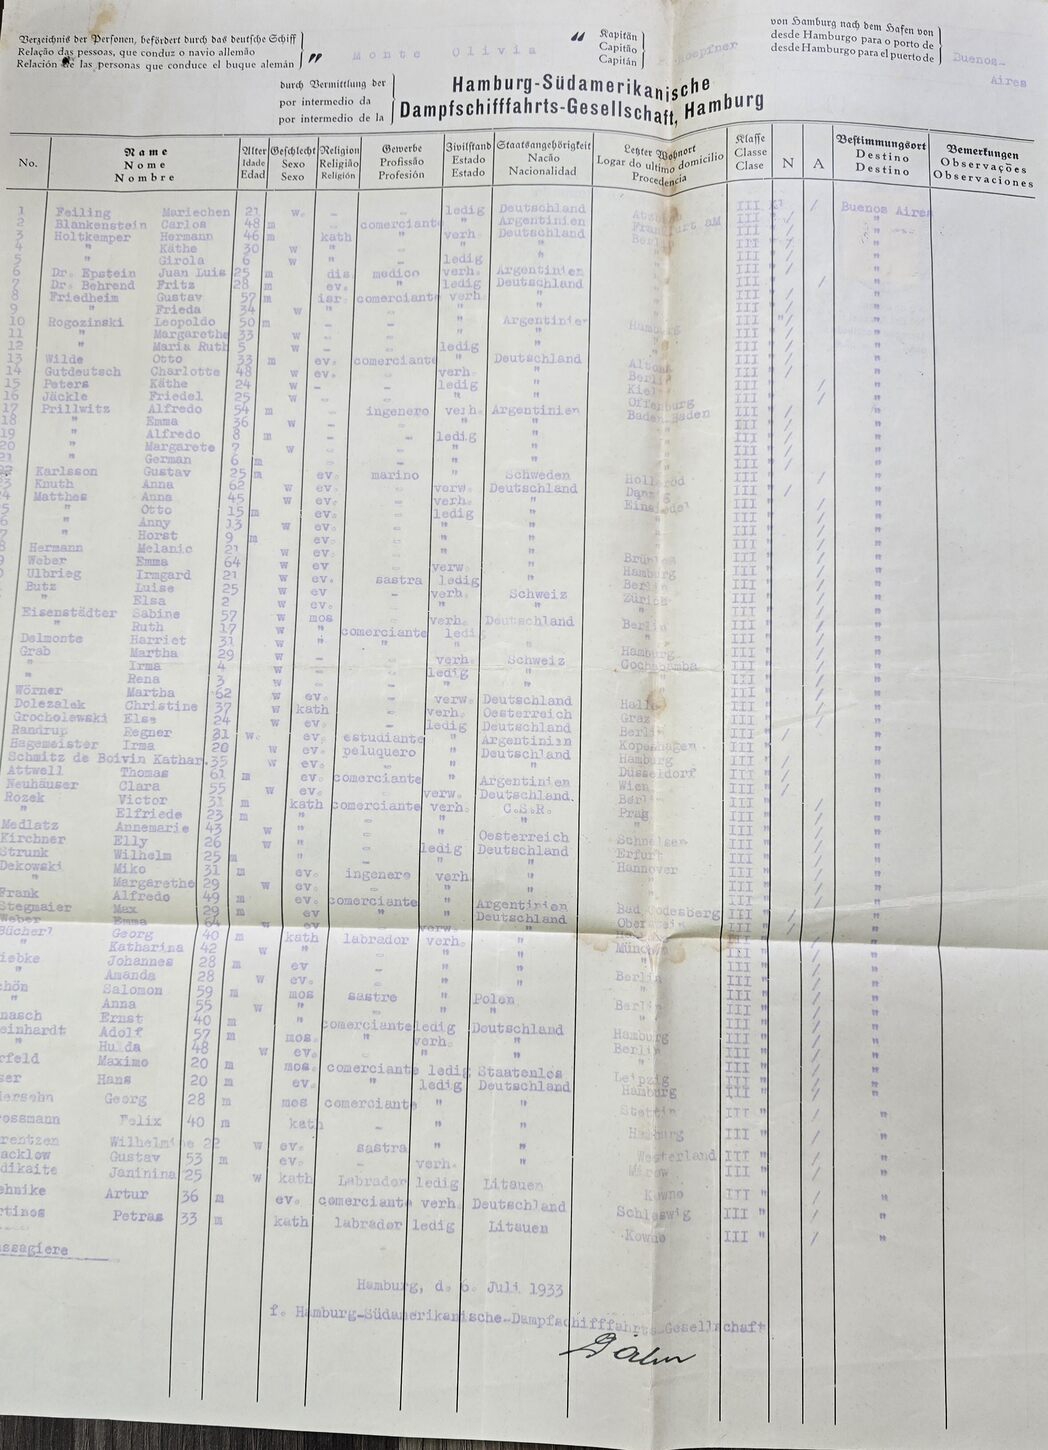 Verzeichnis der Personen, befördert durch das deutsche Schiff
Relação das pessoas, que conduz o navio allemão
Relación de las personas que conduce el buque alemán
" Monte Olivia "
Kapitän
Capitão
Capitán
Hoepfner
von Hamburg nach dem Hafen von
desde Hamburgo para o porto de
desde Hamburgo para el puerto de
Buenos-
Aires
durch Vermittlung der
por intermedio da
por intermedio de la
Hamburg-Südamerikanische
Dampfschifffahrts-Gesellschaft, Hamburg
No.
Name
Nome
Nombre
Alter
Idade
Edad
Geschlecht
Sexo
Sexo
Religion
Religião
Religión
Gewerbe
Profissão
Profesión
Zivilstand
Estado
Estado
Staatsangehörigkeit
Nacão
Nacionalidad
Letzter Wohnort
Logar do ultimo domicilio
Procedencia
Klasse
Classe
Clase
N
A
Bestimmungsort
Destino
Destino
Bemerkungen
Observações
Observaciones
1 Feiling Mariechen 21 w. - - ledig Deutschland III / Buenos Aires
2 Blankenstein Carlos 48 m - comerciante " Argentinien Frankfurt aM III " / "
3 Holtkemper Hermann 46 m kath " verh. Deutschland Berlin III " / "
4 " Käthe 30 w " - " " III " / "
5 " Girola 6 w " - ledig " III " / "
6 Dr. Epstein Juan Luis 25 m dis medico verh. Argentinien III " / "
7 Dr. Behrend Fritz 28 m ev. " ledig Deutschland III " / "
8 Friedheim Gustav 57 m isr comerciante verh. " III " / "
9 " Frieda 34 w " - " " III " / "
10 Rogozinski Leopoldo 50 m - - " Argentinien Hamburg III " / "
11 " Margarethe 33 w - - " " III " / "
12 " Maria Ruth 5 w - - ledig " III " / "
13 Wilde Otto 33 m ev. comerciante " Deutschland Altona III " / "
14 Gutdeutsch Charlotte 48 w ev. - verh. " Berlin III " / "
15 Peters Käthe 24 w - - ledig " Kiel III " / "
16 Jäckle Friedel 25 w - " " Offenburg III " / "
17 Prillwitz Alfredo 54 m ingenero verh. Argentinien Baden-Baden III " / "
18 " Emma 36 w - " " III " / "
19 " Alfredo 8 m - ledig " III " / "
20 " Margarete 7 w - " " III " / "
21 " German 6 m - " " III " / "
22 Karlsson Gustav 25 m ev. marino " Schweden III " / "
23 Knuth Anna 62 w ev. - verw. Deutschland Danzig III " / "
24 Matthes Anna 45 w ev. - verh. " Einsiedel III " / "
5 " Otto 15 m ev. - ledig " III " / "
6 " Anny 13 w ev. - " " III " / "
7 " Horst 9 m ev. - " " III " / "
8 Hermann Melanie 21 w ev. - " " III " / "
9 Weber Emma 64 w ev - verw. " Hamburg III " / "
0 Ulbrieg Irmgard 21 w ev. sastra ledig " Berlin III " / "
Butz Luise 25 w ev. - verh. Schweiz Zürich III " / "
" Elsa 2 w ev. - " " III " / "
Eisenstädter Sabine 57 w mos - verh. Deutschland Berlin III " / "
" Ruth 17 w " comerciante ledig " III " / "
Delmonte Harriet 31 w " - " " Hamburg III " / "
Grab Martha 29 w - - verh. Schweiz Cochabamba III " / "
" Irma 4 w - - ledig " III " / "
" Rena 3 w - - " " III " / "
Wörner Martha 62 w ev. - verw. Deutschland Halle III " / "
Dolezalek Christine 37 w kath - verh. Oesterreich Graz III " / "
Grocholewski Else 24 w ev. - ledig Deutschland Berlin III " / "
Randrup Regner 31 w. ev. estudiante " Argentinien Kopenhagen III " / "
Hagemeister Irma 20 w ev. peluquero " Deutschland Hamburg III " / "
Schmitz de Boivin Kathar. 35 w ev. - " Düsseldorf III " / "
Attwell Thomas 61 m ev. comerciante " Argentinien Wien III " / "
Neuhäuser Clara 55 w ev. - verw. Deutschland. Berlin III " / "
Rozek Victor 31 m kath comerciante verh. C.S.R. Prag III " / "
" Elfriede 23 m " - " " III " / "
Medlatz Annemarie 43 w " - " Oesterreich Schnelsen III " / "
Kirchner Elly 26 w " - ledig Deutschland Erfurt III " / "
Strunk Wilhelm 25 m - " " Hannover III " / "
Dekowski Miko 31 m ev. ingenero verh. " III " / "
" Margarethe 29 w ev. - " " III " / "
Frank Alfredo 49 m ev. comerciante " Argentinien Bad Godesberg III " / "
Stegmaier Max 29 m ev " " Deutschland III " / "
Weber Emma 64 w ev - verw. " III " / "
Bücherl Georg 40 m kath labrador verh. " München III " / "
" Katharina 42 w " - " " III " / "
iebke Johannes 28 m ev - " " Berlin III " / "
" Amanda 28 w ev - " " III " / "
hön Salomon 59 m mos sastre " Polen Berlin III " / "
" Anna 55 w " - " " III " / "
nasch Ernst 40 m " comerciante ledig Deutschland Hamburg III " / "
einhardt Adolf 57 m mos. " verh. " Berlin III " / "
" Hulda 48 w ev. - " " III " / "
rfeld Maximo 20 m mos. comerciante ledig Staatenlos Leipzig III " / "
ser Hans 20 m ev. " ledig Deutschland Hamburg III " / "
dersohn Georg 28 m mos comerciante " " Stettin III " / "
rossmann Felix 40 m kath - " " Hamburg III " / "
rentzen Wilhelmine 22 w ev. sastra " " Westerland III " / "
acklow Gustav 53 m ev. - verh. " Mirow III " / "
dikaite Janinina 25 w kath Labrador ledig Litauen Kowno III " / "
ehnike Artur 36 m ev. comerciante verh. Deutschland Schleswig III " / "
rtinos Petras 33 m kath labrador ledig Litauen Kowno III " / "
ssagiere
Hamburg, d. 6. Juli 1933
f. Hamburg-Südamerikanische-Dampfschifffahrts-Gesellschaft